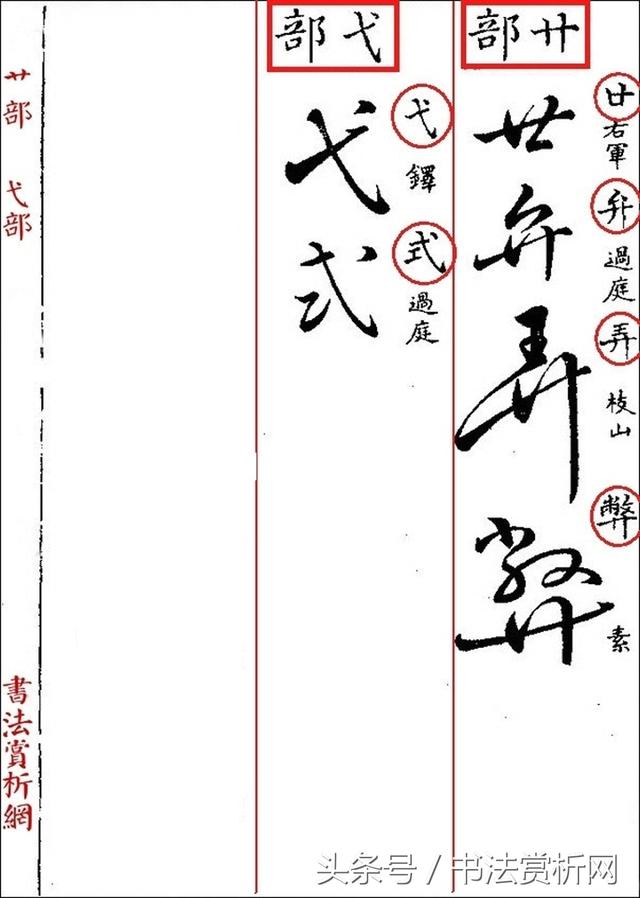 廾部
廿
右軍
弁
過庭
弄
枝山
弊
素
廿弁弄弊
弋部
弋
鐸
式
過庭
弋式
廾部 弋部
書法賞析網
头条号 / 书法赏析网